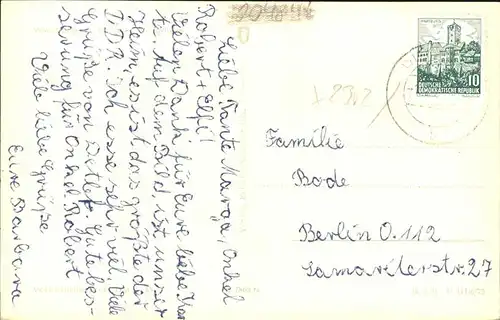 Liebe Tante Marga, Onkel
Robert + Elfi!
Vielen Dank für Eure liebe Kar
te. Auf dem Bild ist unser
Heim, es ist das größte der
DDR. ich esse sehr viel. Viele
Grüße von Detlef. Gute bes-
serung für Onkel Robert
Viele liebe Grüße
Eure Barbara
10
DEUTSCHE
DEMOKRATISCHE REPUBLIK
Familie
Bode
Berlin O. 112
Samariterstr. 27